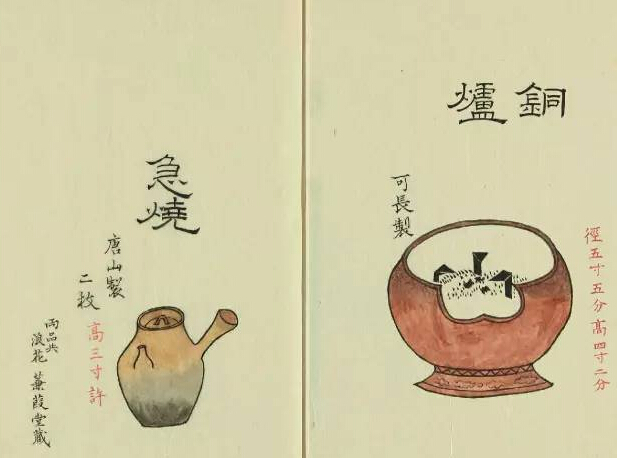 銅爐
可長製
徑五寸五分高四寸二分
急燒
唐山製
二枚
高三寸許
兩品共
浪花 蒹葭堂藏